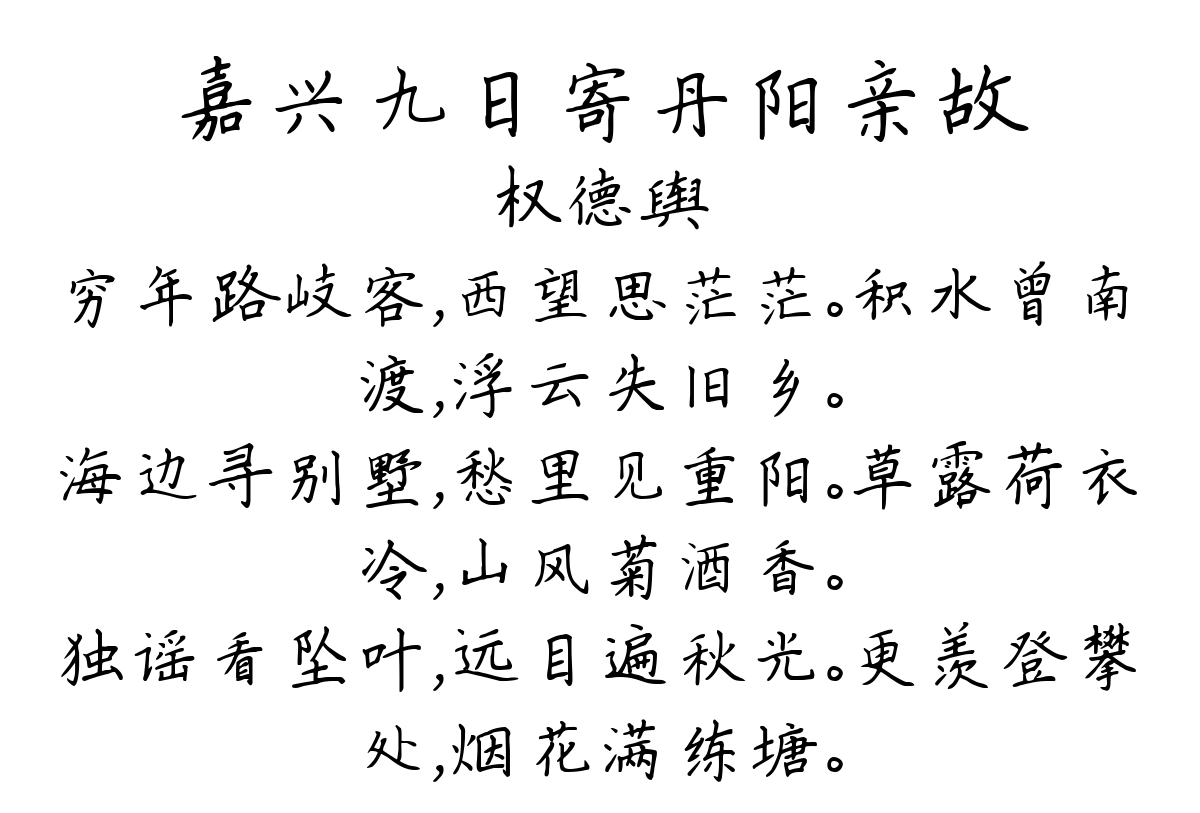 嘉兴九日寄丹阳亲故
权德舆
穷年路岐客,西望思茫茫。积水曾南
渡,浮云失旧乡。
海边寻别墅,愁里见重阳。草露荷衣
冷,山风菊酒香。
独谣看坠叶,远目遍秋光。更羡登攀
处,烟花满练塘。